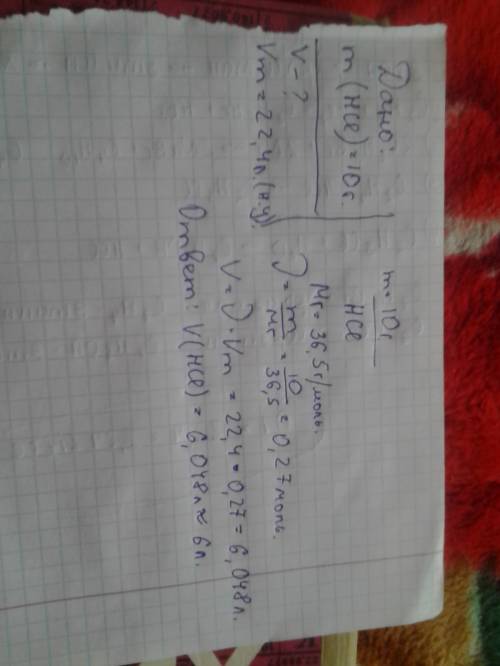 Дано:
m(HCl)=10г
V-?
Vm=22,4л.(н.у).
m=10г
HCl
Mr=36,5г/моль.
ν=m/Mr=10/36,5=0,27моль.
V=ν·Vm=22,4*0,27=6,048л.
Ответ: V(HCl)=6,048л≈6л.